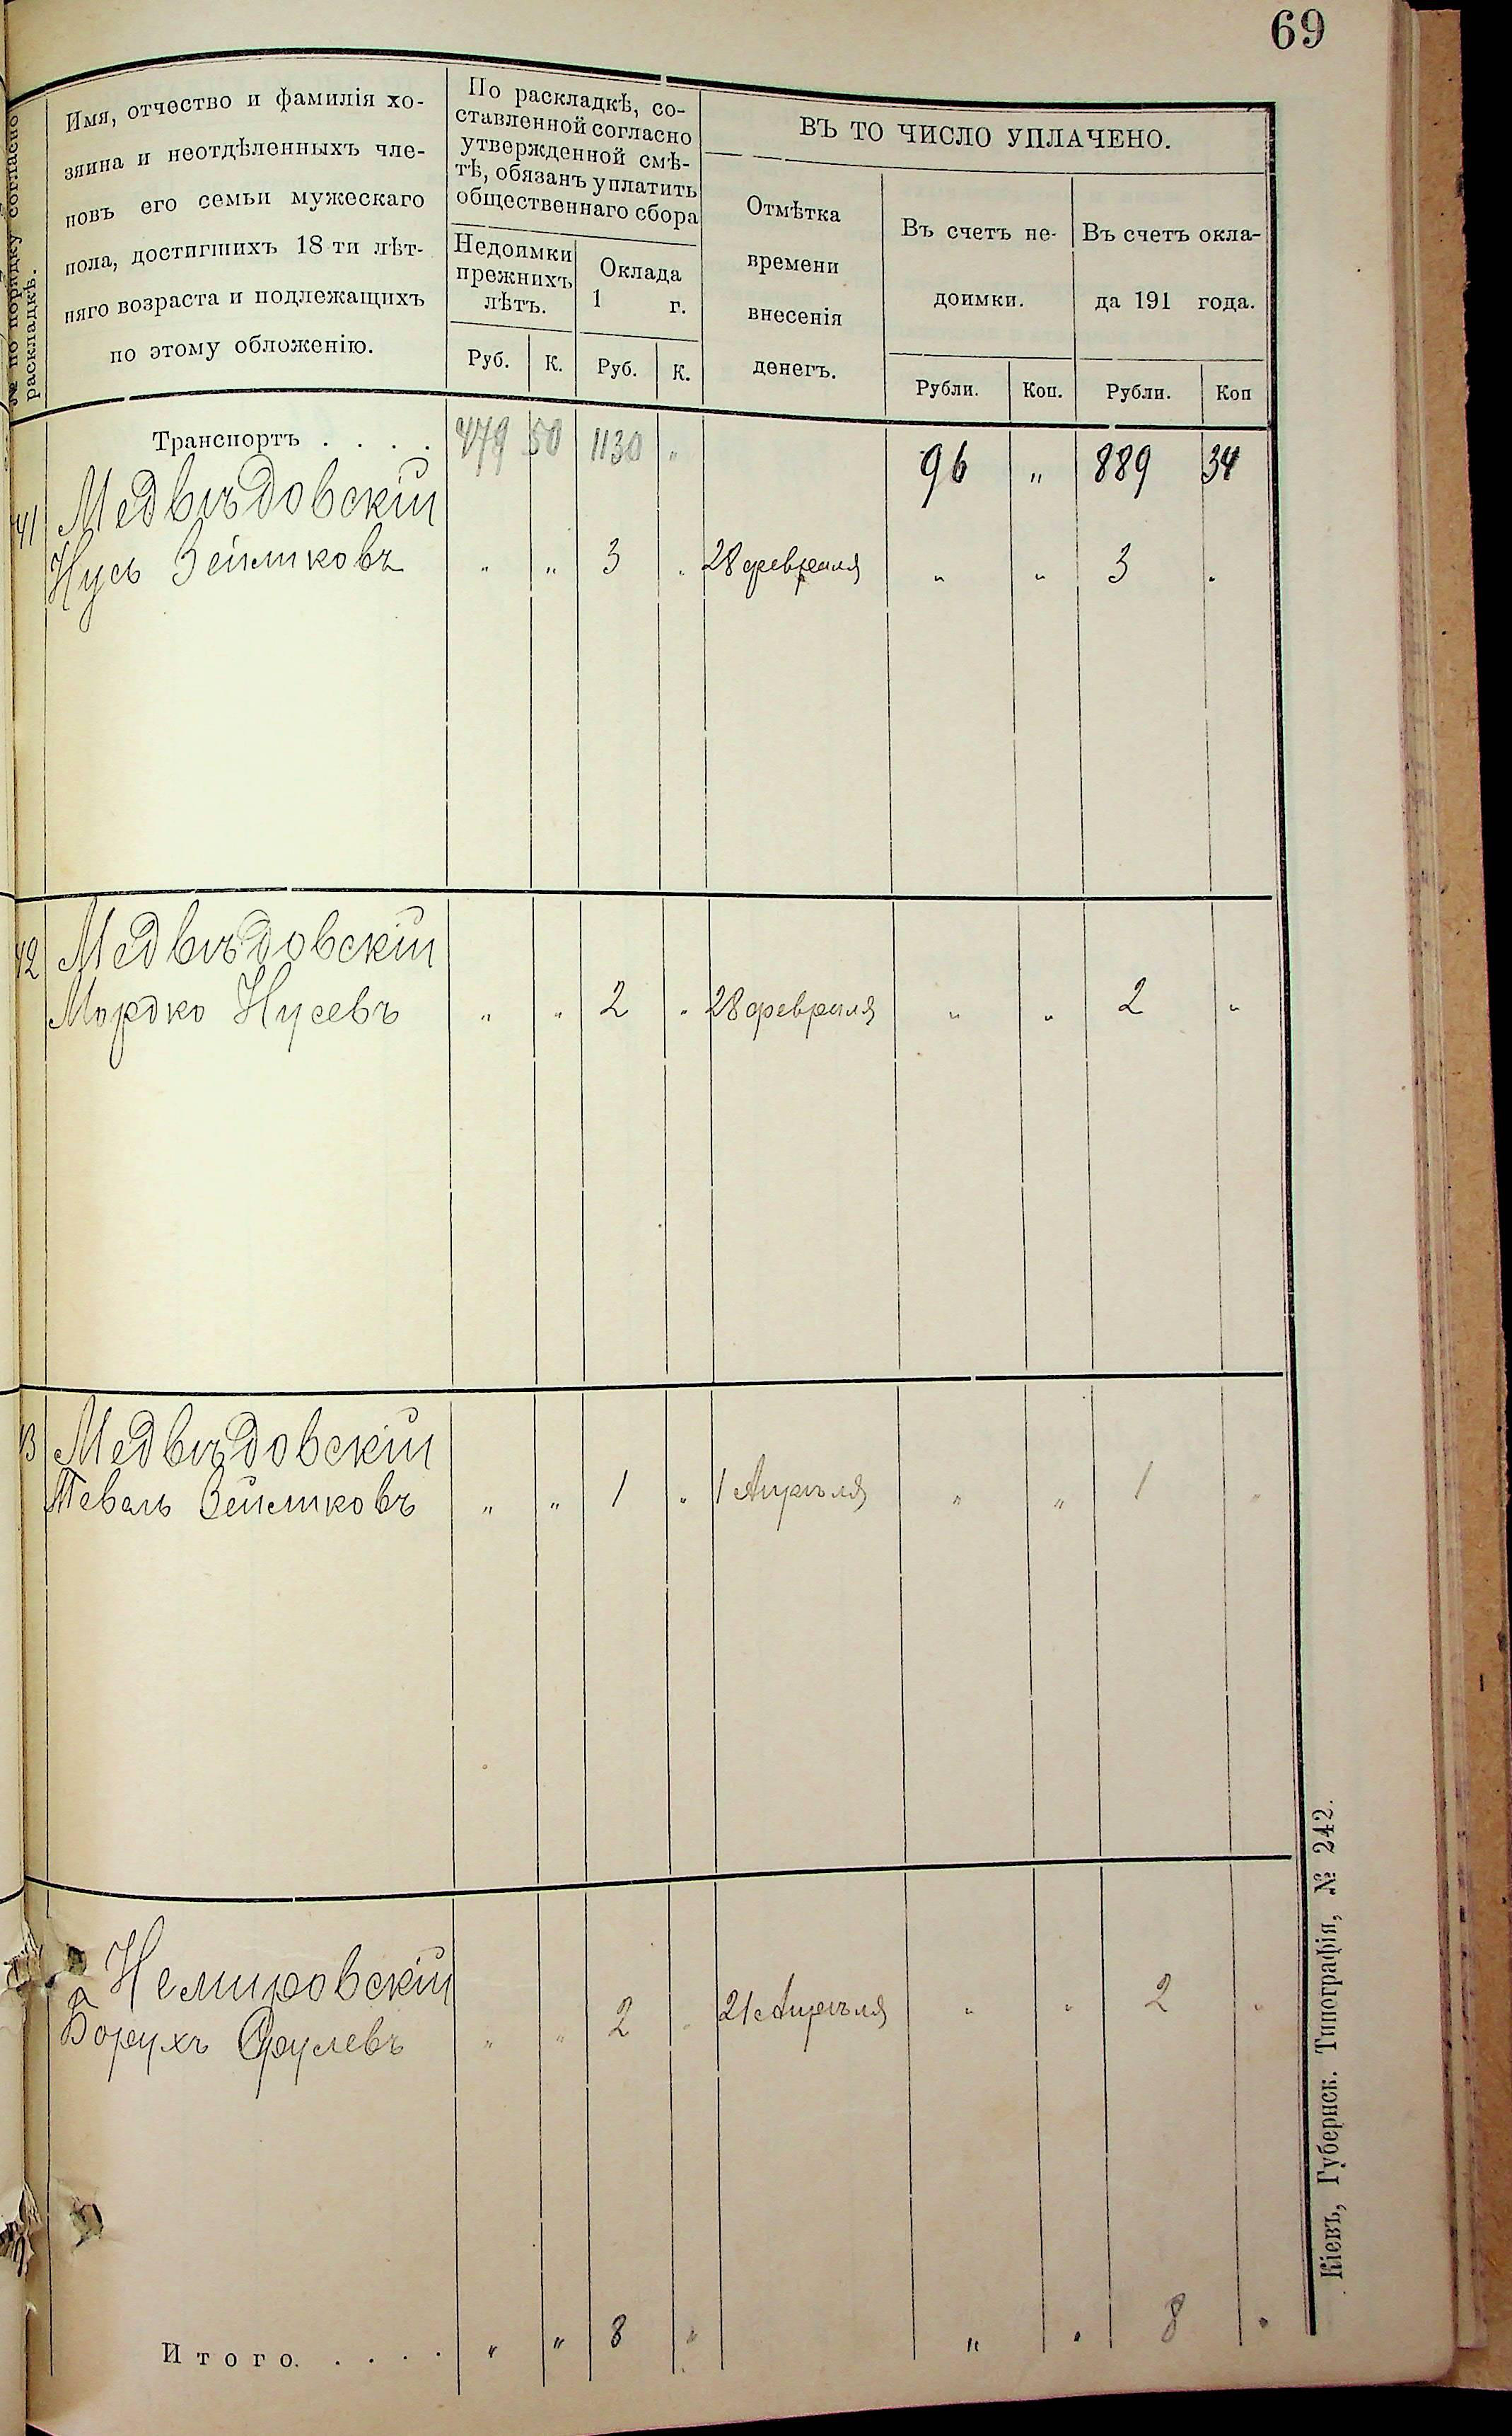 69
№ по порядку согласно
раскладкѣ.
Имя, отчество и фамилія хо-
зяина и неотдѣленныхъ чле-
новъ его семьи мужескаго
пола, достигшихъ 18 ти лѣт-
няго возраста и подлежащихъ
по этому обложенію.
По раскладкѣ, со-
ставленной согласно
утвержденной смѣ-
тѣ, обязанъ уплатить
общественнаго сбора
Недоимки
прежнихъ
лѣтъ.
Оклада
1 г.
Руб. К. Руб. К.
ВЪ ТО ЧИСЛО УПЛАЧЕНО.
Отмѣтка
времени
внесенія
денегъ.
Въ счетъ не-
доимки.
Въ счетъ окла-
да 191 года.
Рубли. Коп. Рубли. Коп
Транспортъ . . . . 479 50 1130 " 96 " 889 34
41 Медвѣдовскій
Нусь Зейликовъ " " 3 " 28 февраля " " 3 "
42 Медвѣдовскій
Мордко Нусевъ " " 2 " 28 февраля " " 2 "
Медвѣдовскій
Тевель Зейликовъ " " 1 " 1 Апрѣля " " 1 "
Немировскій
Борухъ Срулевъ " " 2 " 21 Апрѣля " " 2 "
Итого. . . . . " " 8 " " " 8 "
Кіевъ, Губернск. Типографія, № 242.